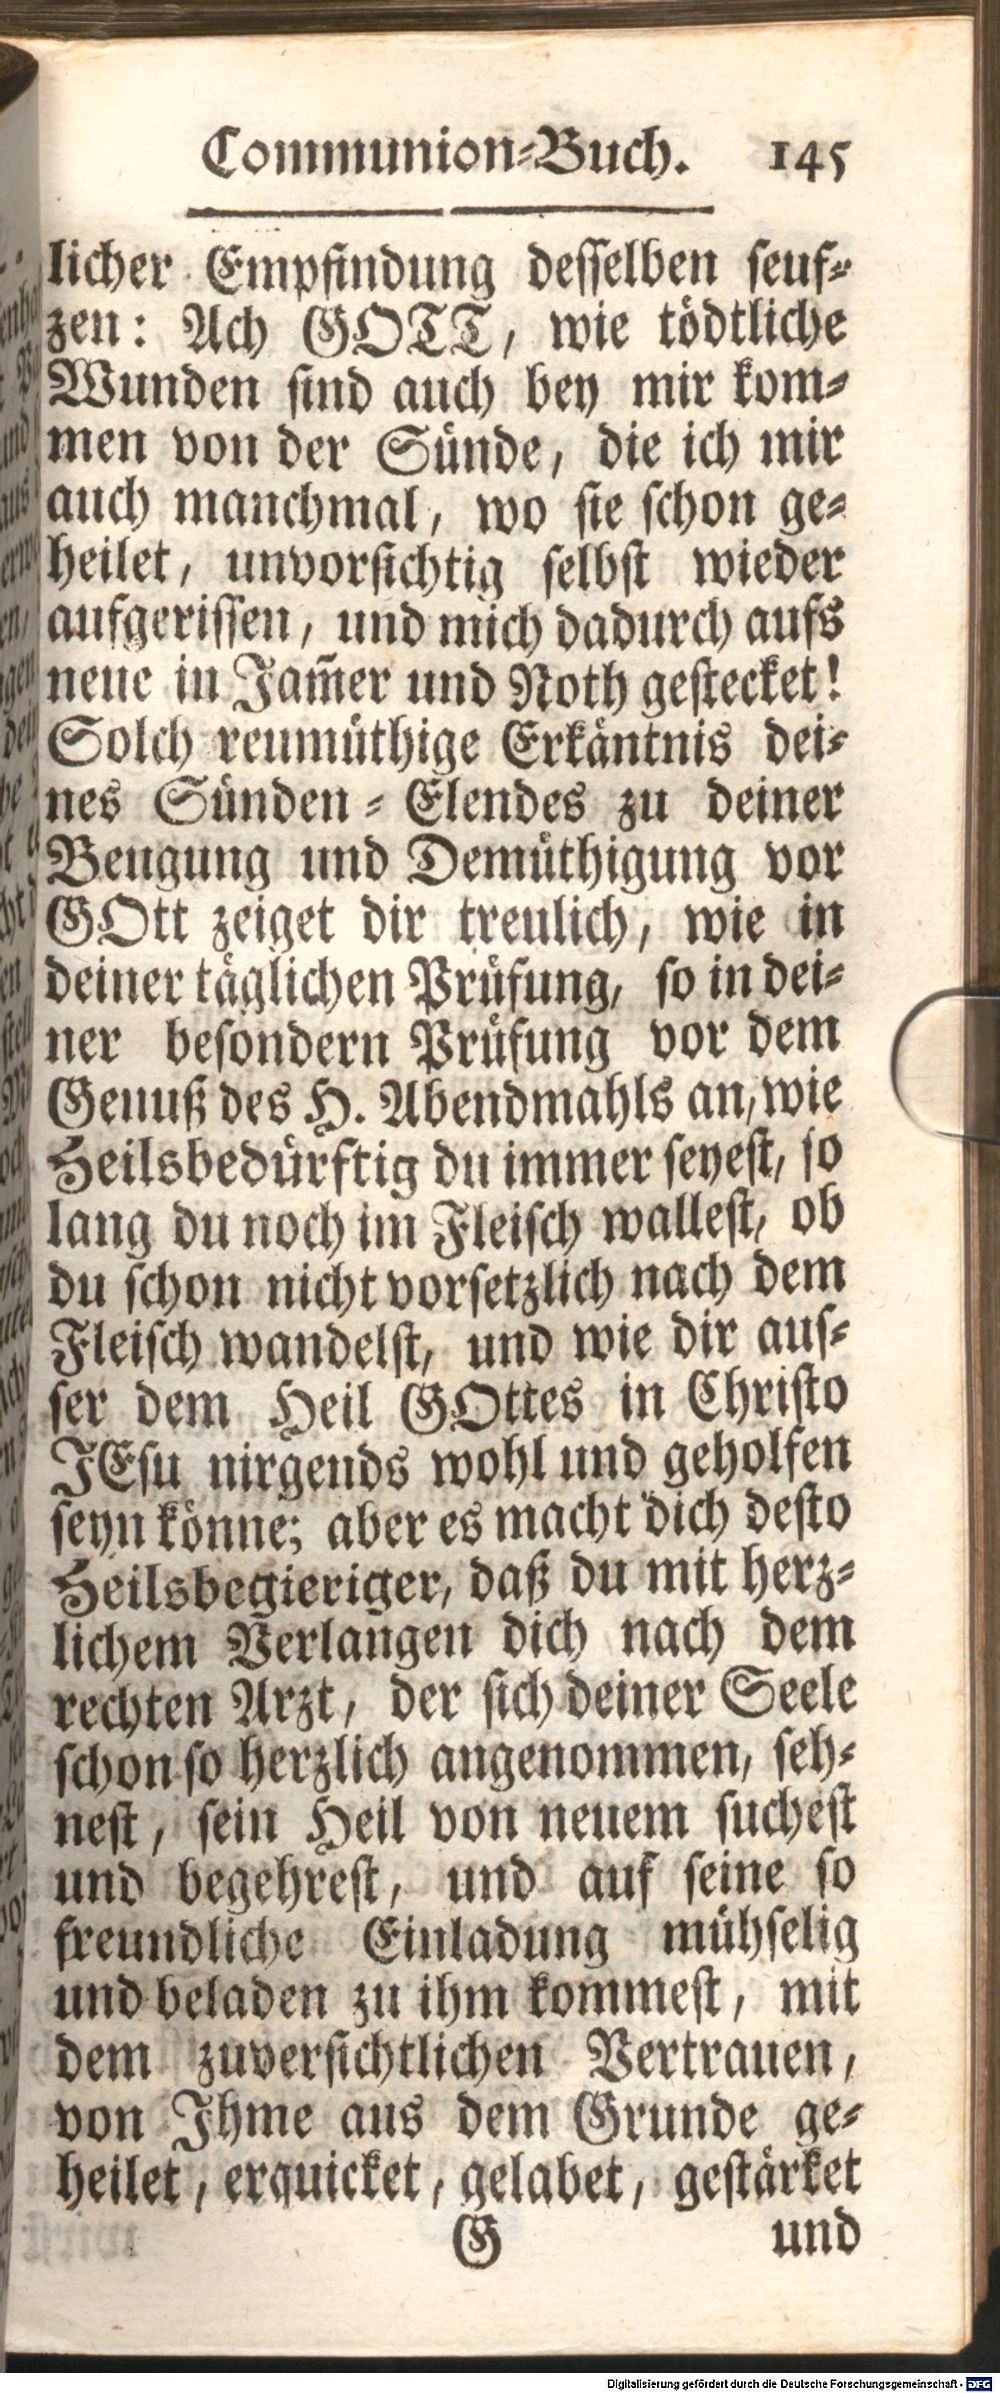 Communion-Buch. 145
licher Empfindung desselben seuf-
zen: Ach GOTT, wie tödtliche
Wunden sind auch bey mir kom-
men von der Sünde, die ich mir
auch manchmal, wo sie schon ge-
heilet, unvorsichtig selbst wieder
aufgerissen, und mich dadurch aufs
neue in Jam̃er und Noth gestecket!
Solch reumüthige Erkäntnis dei-
nes Sünden-Elendes zu deiner
Beugung und Demüthigung vor
GOtt zeiget dir treulich, wie in
deiner täglichen Prüfung, so in dei-
ner besondern Prüfung vor dem
Genuß des H. Abendmahls an, wie
Heilsbedürftig du immer seyest, so
lang du noch im Fleisch wallest, ob
du schon nicht vorsetzlich nach dem
Fleisch wandelst, und wie dir aus-
ser dem Heil GOttes in Christo
JEsu nirgends wohl und geholfen
seyn könne; aber es macht dich desto
Heilsbegieriger, daß du mit herz-
lichem Verlangen dich nach dem
rechten Arzt, der sich deiner Seele
schon so herzlich angenommen, seh-
nest, sein Heil von neuem suchest
und begehrest, und auf seine so
freundliche Einladung mühselig
und beladen zu ihm kommest, mit
dem zuversichtlichen Vertrauen,
von Ihme aus dem Grunde ge-
heilet, erquicket, gelabet, gestärket
G und
Digitalisierung gefördert durch die Deutsche Forschungsgemeinschaft - DFG